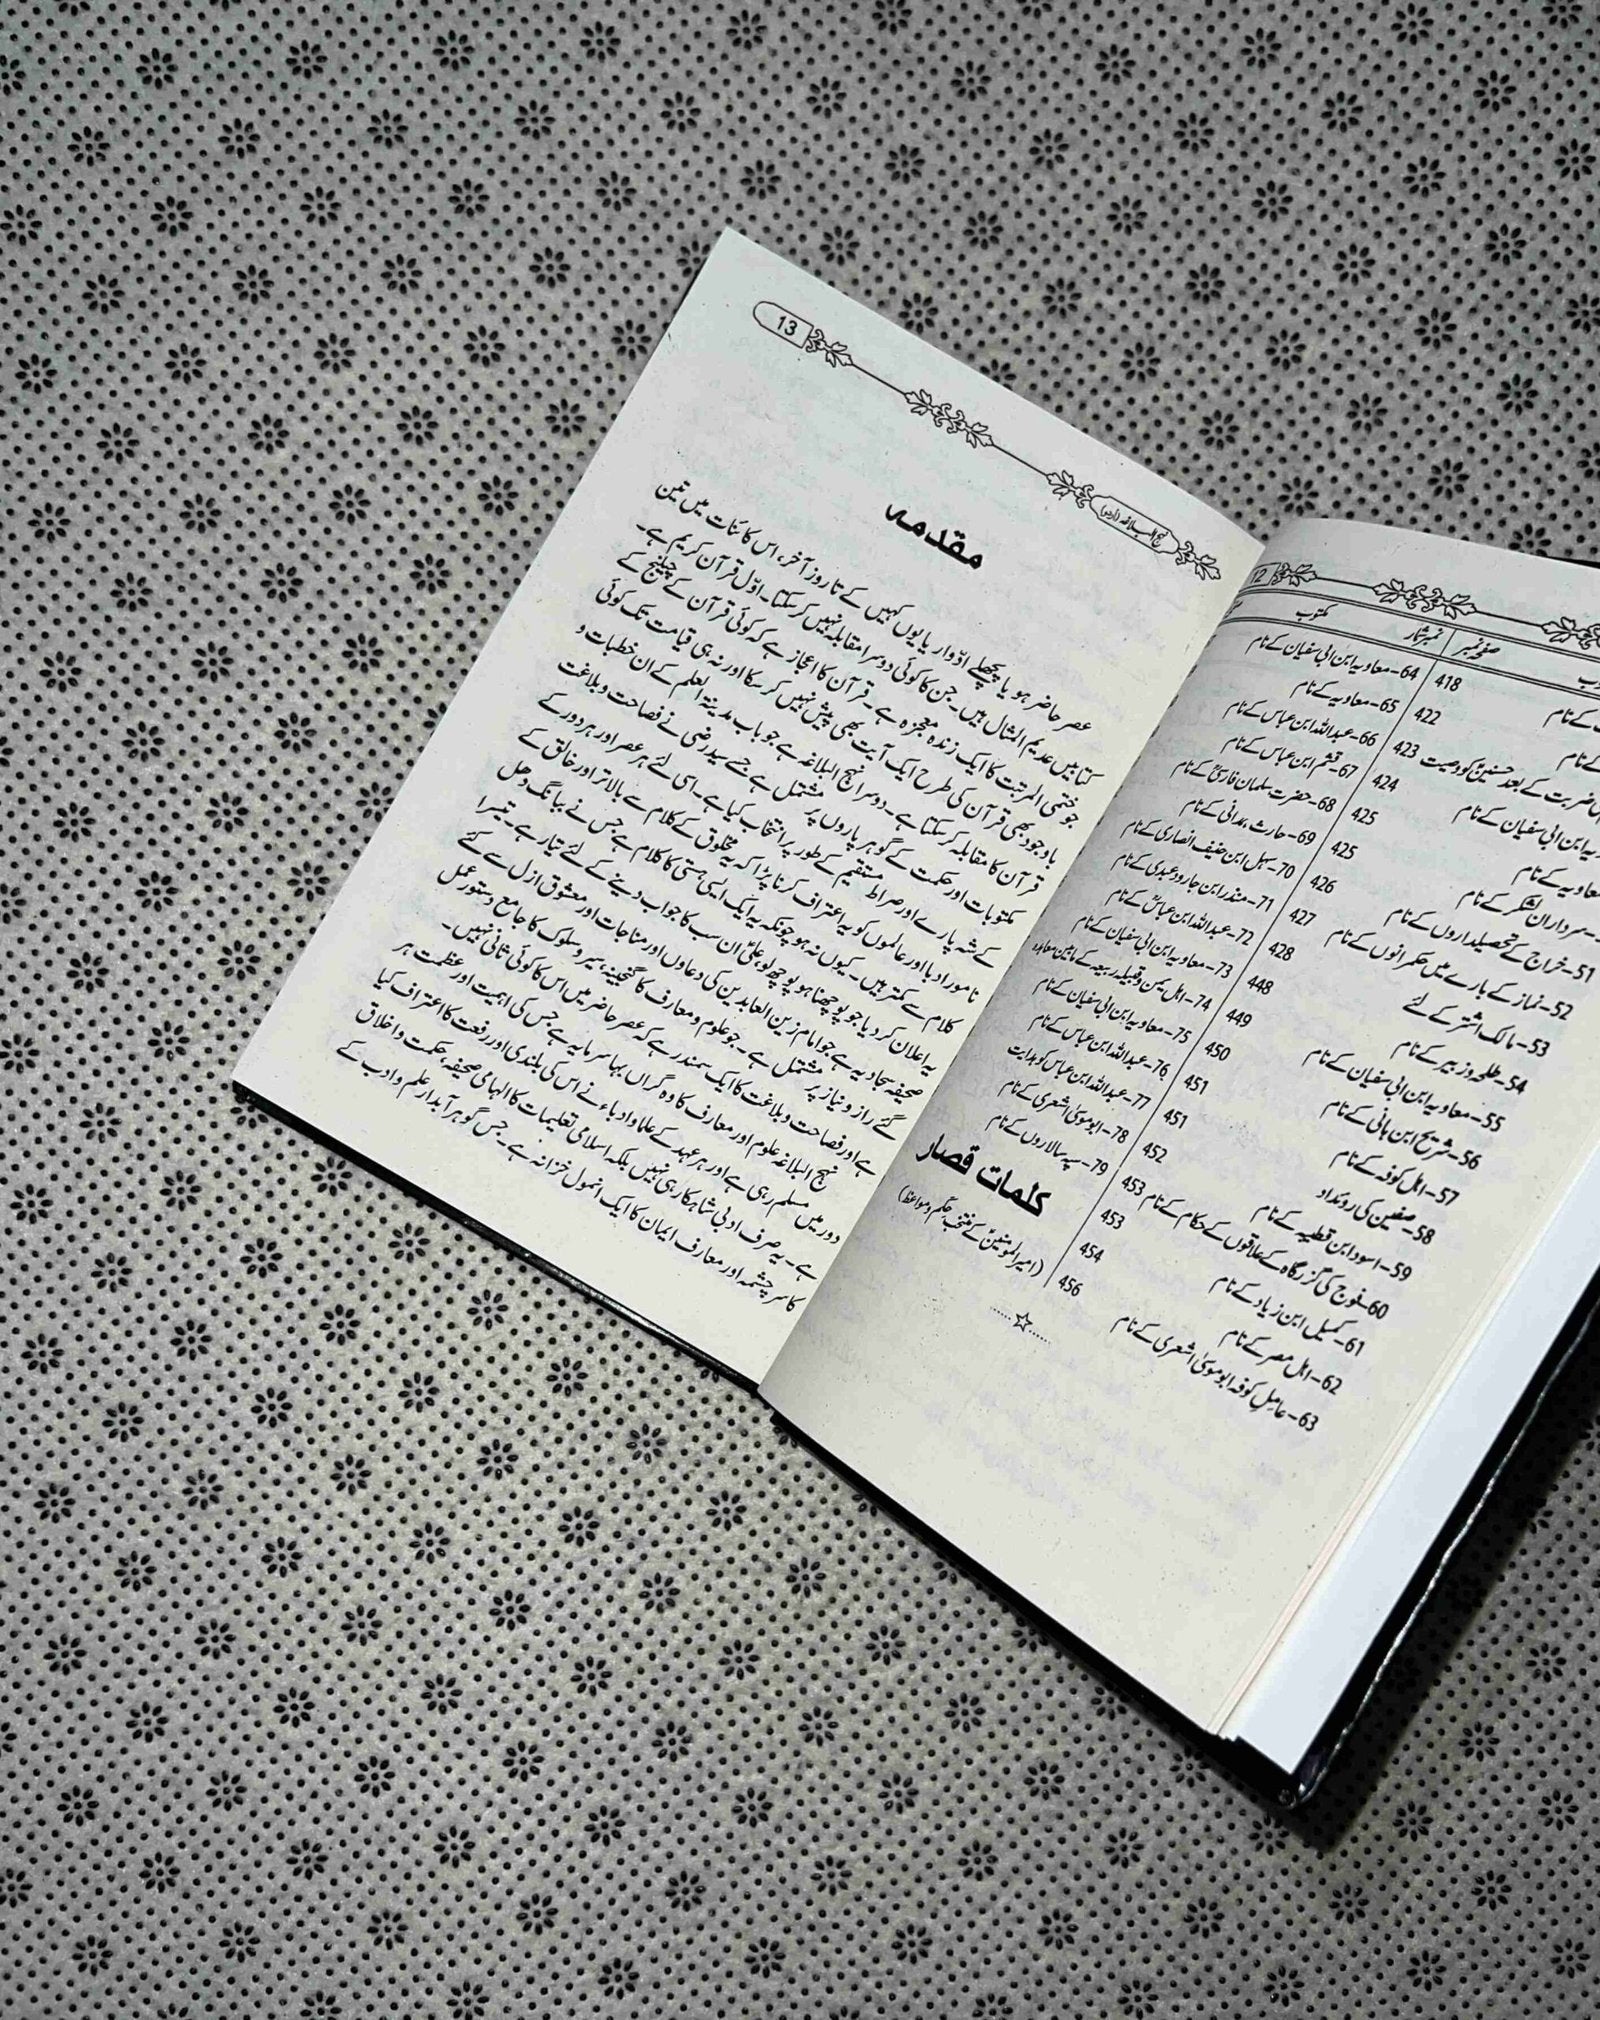 12
صفحہ نمبر
نمبر شمار
مکتوب
کے نام
معاویہ کے نام
سرداران لشکر کے نام
51-خراج کے تحصیلداروں کے نام
52-نماز کے بارے میں حکمرانوں کے نام
53-مالک اشتر کے لئے
54-طلحہ و زبیر کے نام
55-معاویہ ابن ابی سفیان کے نام
56-شریح ابن ہانی کے نام
57-اہل کوفہ کے نام
58-صفین کی روئداد
59-اسود ابن قطیبہ کے نام
60-فوج کی گزرگاہ کے علاقوں کے حکام کے نام
61-کمیل ابن زیاد کے نام
62-اہل مصر کے نام
63-عامل کوفہ ابو موسیٰ اشعری کے نام
418
422
423
424
425
425
426
427
428
448
449
450
451
451
452
453
453
454
456
64-معاویہ ابن ابی سفیان کے نام
65-معاویہ کے نام
66-عبداللہ ابن عباس کے نام
67-قثم ابن عباس کے نام
68-حضرت سلمان فارسیؓ کے نام
69-حارث ہمدانی کے نام
70-سہل ابن حنیف انصاری کے نام
71-منذر ابن جارود عبدی کے نام
72-عبداللہ ابن عباسؓ کے نام
73-معاویہ ابن ابی سفیان کے نام
74-اہل یمن و قبیلہ ربیعہ کے مابین معاہدہ
75-معاویہ ابن ابی سفیان کے نام
76-عبداللہ ابن عباس کے نام
77-عبداللہ ابن عباس کو ہدایت
78-ابو موسیٰ اشعری کے نام
79-سپہ سالاروں کے نام
کلمات قصار
(امیر المومنینؑ کے منتخب حِکَم و مواعظ)
نہج البلاغہ (اردو)
13
مقدمہ
عصر حاضر ہو یا پچھلے ادوار یا یوں کہیں کے تا روز آخر، اس کائنات میں تین
کتابیں عدیم المثال ہیں۔ جن کا کوئی دوسرا مقابلہ نہیں کر سکتا۔ اوّل قرآن کریم ہے۔
جو ختمی المرتبت کا ایک زندہ معجزہ ہے۔ قرآن کا اعجاز ہے کہ کوئی قرآن کے چیلنج کے
باوجود بھی قرآن کی طرح ایک آیت بھی پیش نہیں کر سکا اور نہ ہی قیامت تک کوئی
قرآن کا مقابلہ کر سکتا ہے۔ دوسرا نہج البلاغہ ہے جو باب مدینۃ العلم کے ان خطبات و
مکتوبات اور حکمت کے گوہر پاروں پر مشتمل ہے جسے سید رضی نے فصاحت و بلاغت
کے شہ پارے اور صراط مستقیم کے طور پر انتخاب کیا ہے۔ اسی لئے ہر عصر اور ہر دور کے
نامور ادبا اور عالموں کو یہ اعتراف کرنا پڑا کہ یہ مخلوق کے کلام سے بالاتر اور خالق کے
کلام سے کمتر ہیں۔ کیوں نہ ہو چونکہ یہ ایک ایسی ہستی کا کلام ہے جس نے ببانگ دھل
یہ اعلان کر دیا جو پوچھنا ہو پوچھ لو، علیؑ ان سب کا جواب دینے کے لئے تیار ہے۔ تیسرا
صحیفہ سجادیہ ہے جو امام زین العابدین کی دعاوں اور مناجات اور معشوق ازل سے کئے
گئے راز و نیاز پر مشتمل ہے۔ جو علوم و معارف کا گنجینہ، سیر و سلوک کا جامع دستور عمل
ہے اور فصاحت و بلاغت کا ایک سمندر ہے کہ عصر حاضر میں اس کا کوئی ثانی نہیں۔
نہج البلاغہ علوم اور معارف کا وہ گراں بہا سرمایہ ہے جس کی اہمیت اور عظمت ہر
دور میں مسلم رہی ہے اور ہر عہد کے علما و ادباء نے اس کی بلندی اور رفعت کا اعتراف کیا
ہے۔ یہ صرف ادبی شاہکار ہی نہیں بلکہ اسلامی تعلیمات کا الہامی صحیفہ، حکمت و اخلاق
کا سر چشمہ اور معارف ایمان کا ایک انمول خزانہ ہے۔ جس گوہر آبدار علم و ادب کے